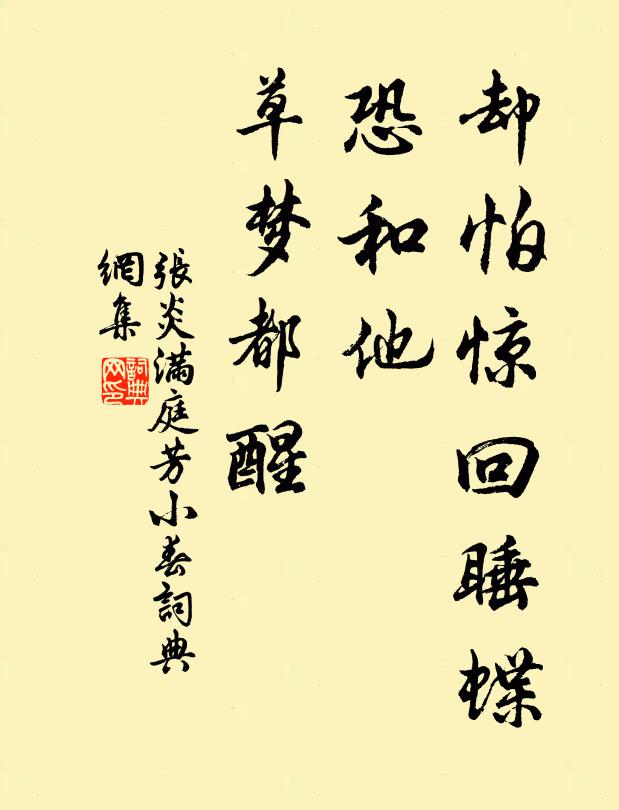 却怕惊回睡蝶
恐和他
草梦都醒
張炎满庭芳小春詞典
網集
詞典
网印